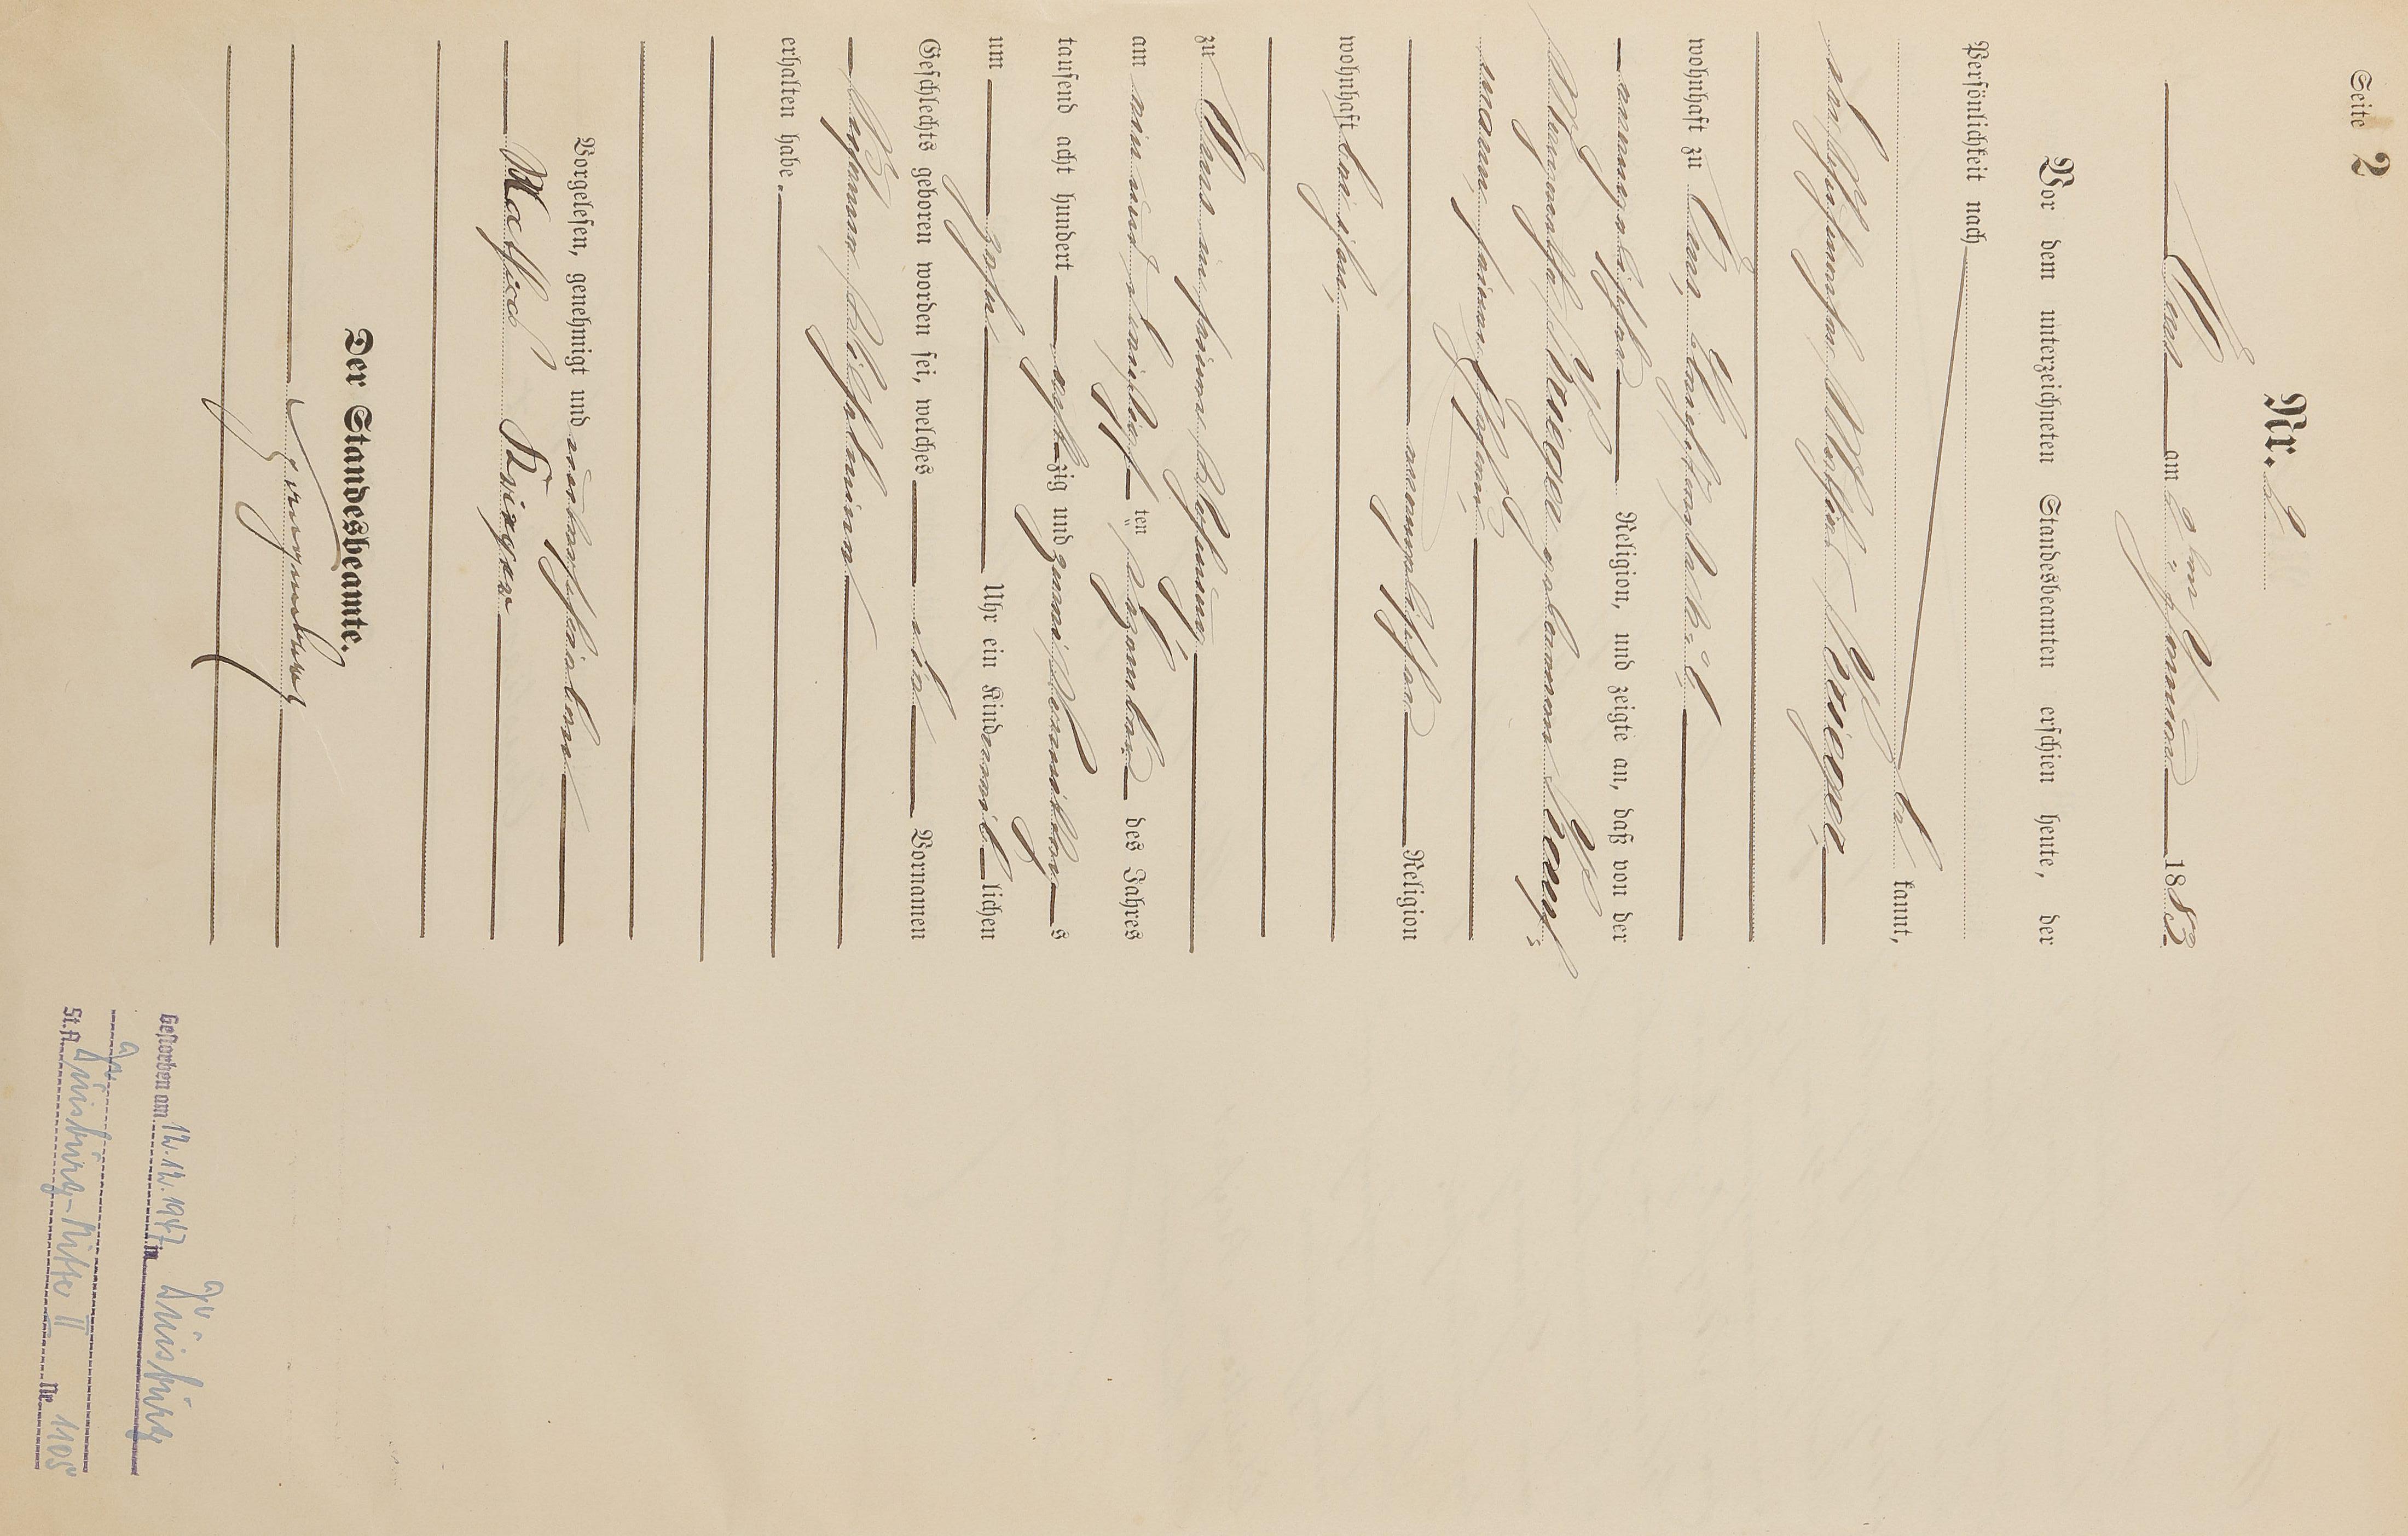 Seite 2
Nr. 2
am 2ten Januar 1883
Vor dem unterzeichneten Standesbeamten erschien heute, der
Persönlichkeit nach
be kannt,
der Krieger
wohnhaft zu
evangelischer Religion, und zeigte an, daß von der
Krieger geborenen Kempf,
mann, seiner Ehefrau,
evangelischer Religion
wohnhaft bei ihm,
zu in seiner Wohnung
am ein und dreißigsten Dezember des Jahres
tausend acht hundert achtzig und zwei Vormittags
um zehn Uhr ein Kind weiblichen
Geschlechts geboren worden sei, welches die Vornamen
Wilhelmine
erhalten habe.
Vorgelesen, genehmigt und unterschrieben
Krieger
Der Standesbeamte.
Gestorben am 12.12.1947 in Duisburg
St.A. Duisburg-Mitte II Nr. 1105